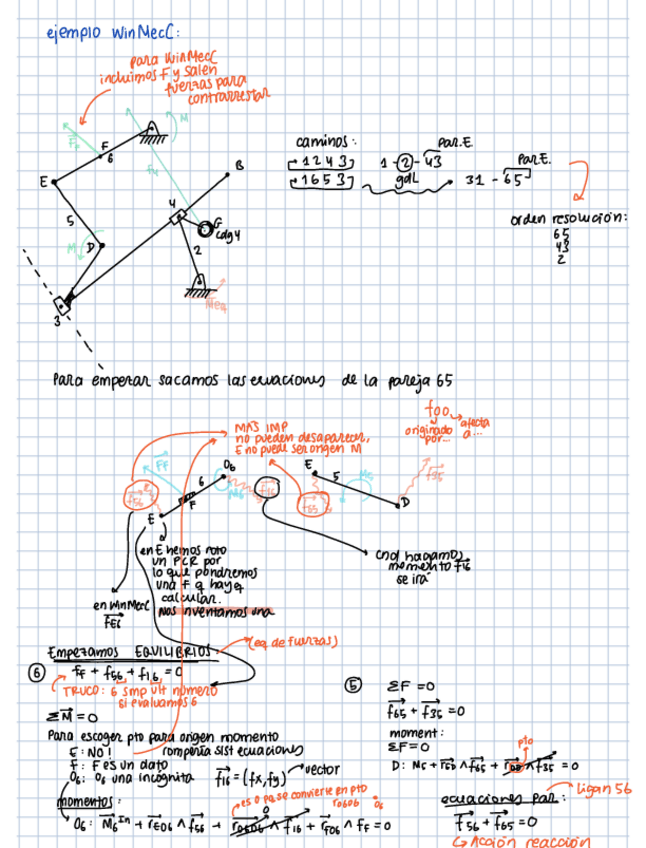 ejemplo WinMecC:
para WinMecC
incluimos F y salen
fuerzas para
contrarrestar
M
F_F
F
6
F4
E
B
5
4
G
cdg4
M
D
2
3
Meq
caminos:
1 2 4 3
1 6 5 3
Par.E.
1 - 2 - 43
gdL
Par E.
31 - 65
orden resolución:
65
43
2
Para empezar sacamos las ecuaciones de la pareja 65
MAS IMP
no pueden desaparecer,
E no puede ser origen M
foo
originado por...
afecta a...
F_F
6
O6
M6
F
E
f56
f16
E
5
M5
f65
D
f35
en E hemos roto
un PCR por
lo que pondremos
una F q hay q
calcular.
Nos inventamos una
en WinMecC
F_E6
cnd hagamos
momento f16
se irá
Empezamos EQUILIBRIOS: (eq. de fuerzas)
6
f_F + f56 + f1,6 = 0
TRUCO: 6 smp ult número
si evaluamos 6
ΣM = 0
Para escoger pto para origen momento
E: NO! rompería sist ecuaciones
F: F es un dato
O6: O6 una incognita f16 = (fx, fy) vector
momentos:
es 0 pq se convierte en pto
rO6O6
O6
0
O6: M6^In + rEO6 ∧ f56 + rO6O6 ∧ f16 + rFO6 ∧ F_F = 0
5
ΣF = 0
f65 + f35 = 0
moment:
ΣF = 0
pto
D: M5 + rED ∧ f65 + rDD ∧ f35 = 0
ecuaciones par: Ligan 56
F56 + f65 = 0
Acción reacción